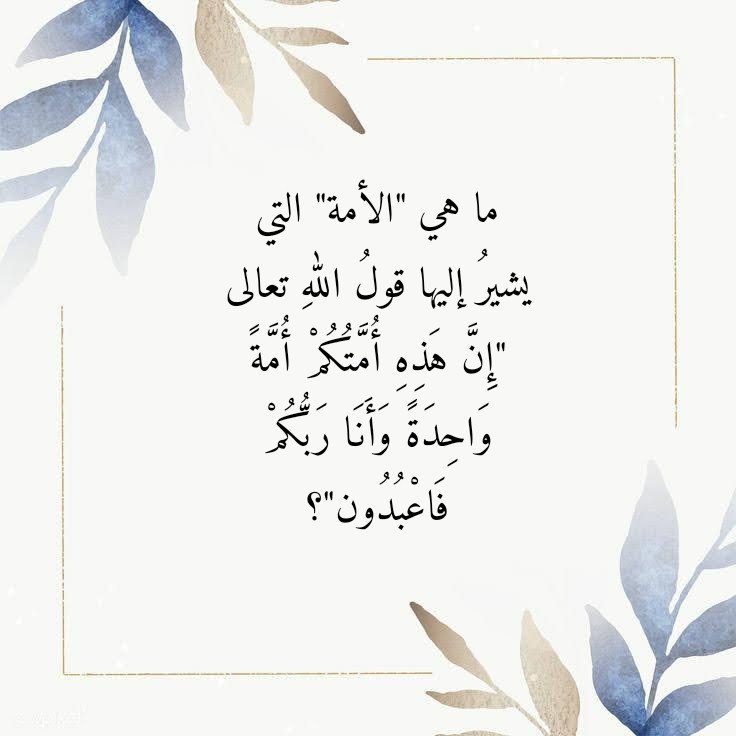 ما هي "الأمة" التي
يشيرُ إليها قولُ اللهِ تعالى
"إِنَّ هَذِهِ أُمَّتُكُمْ أُمَّةً
وَاحِدَةً وَأَنَا رَبُّكُمْ
فَاعْبُدُون"؟